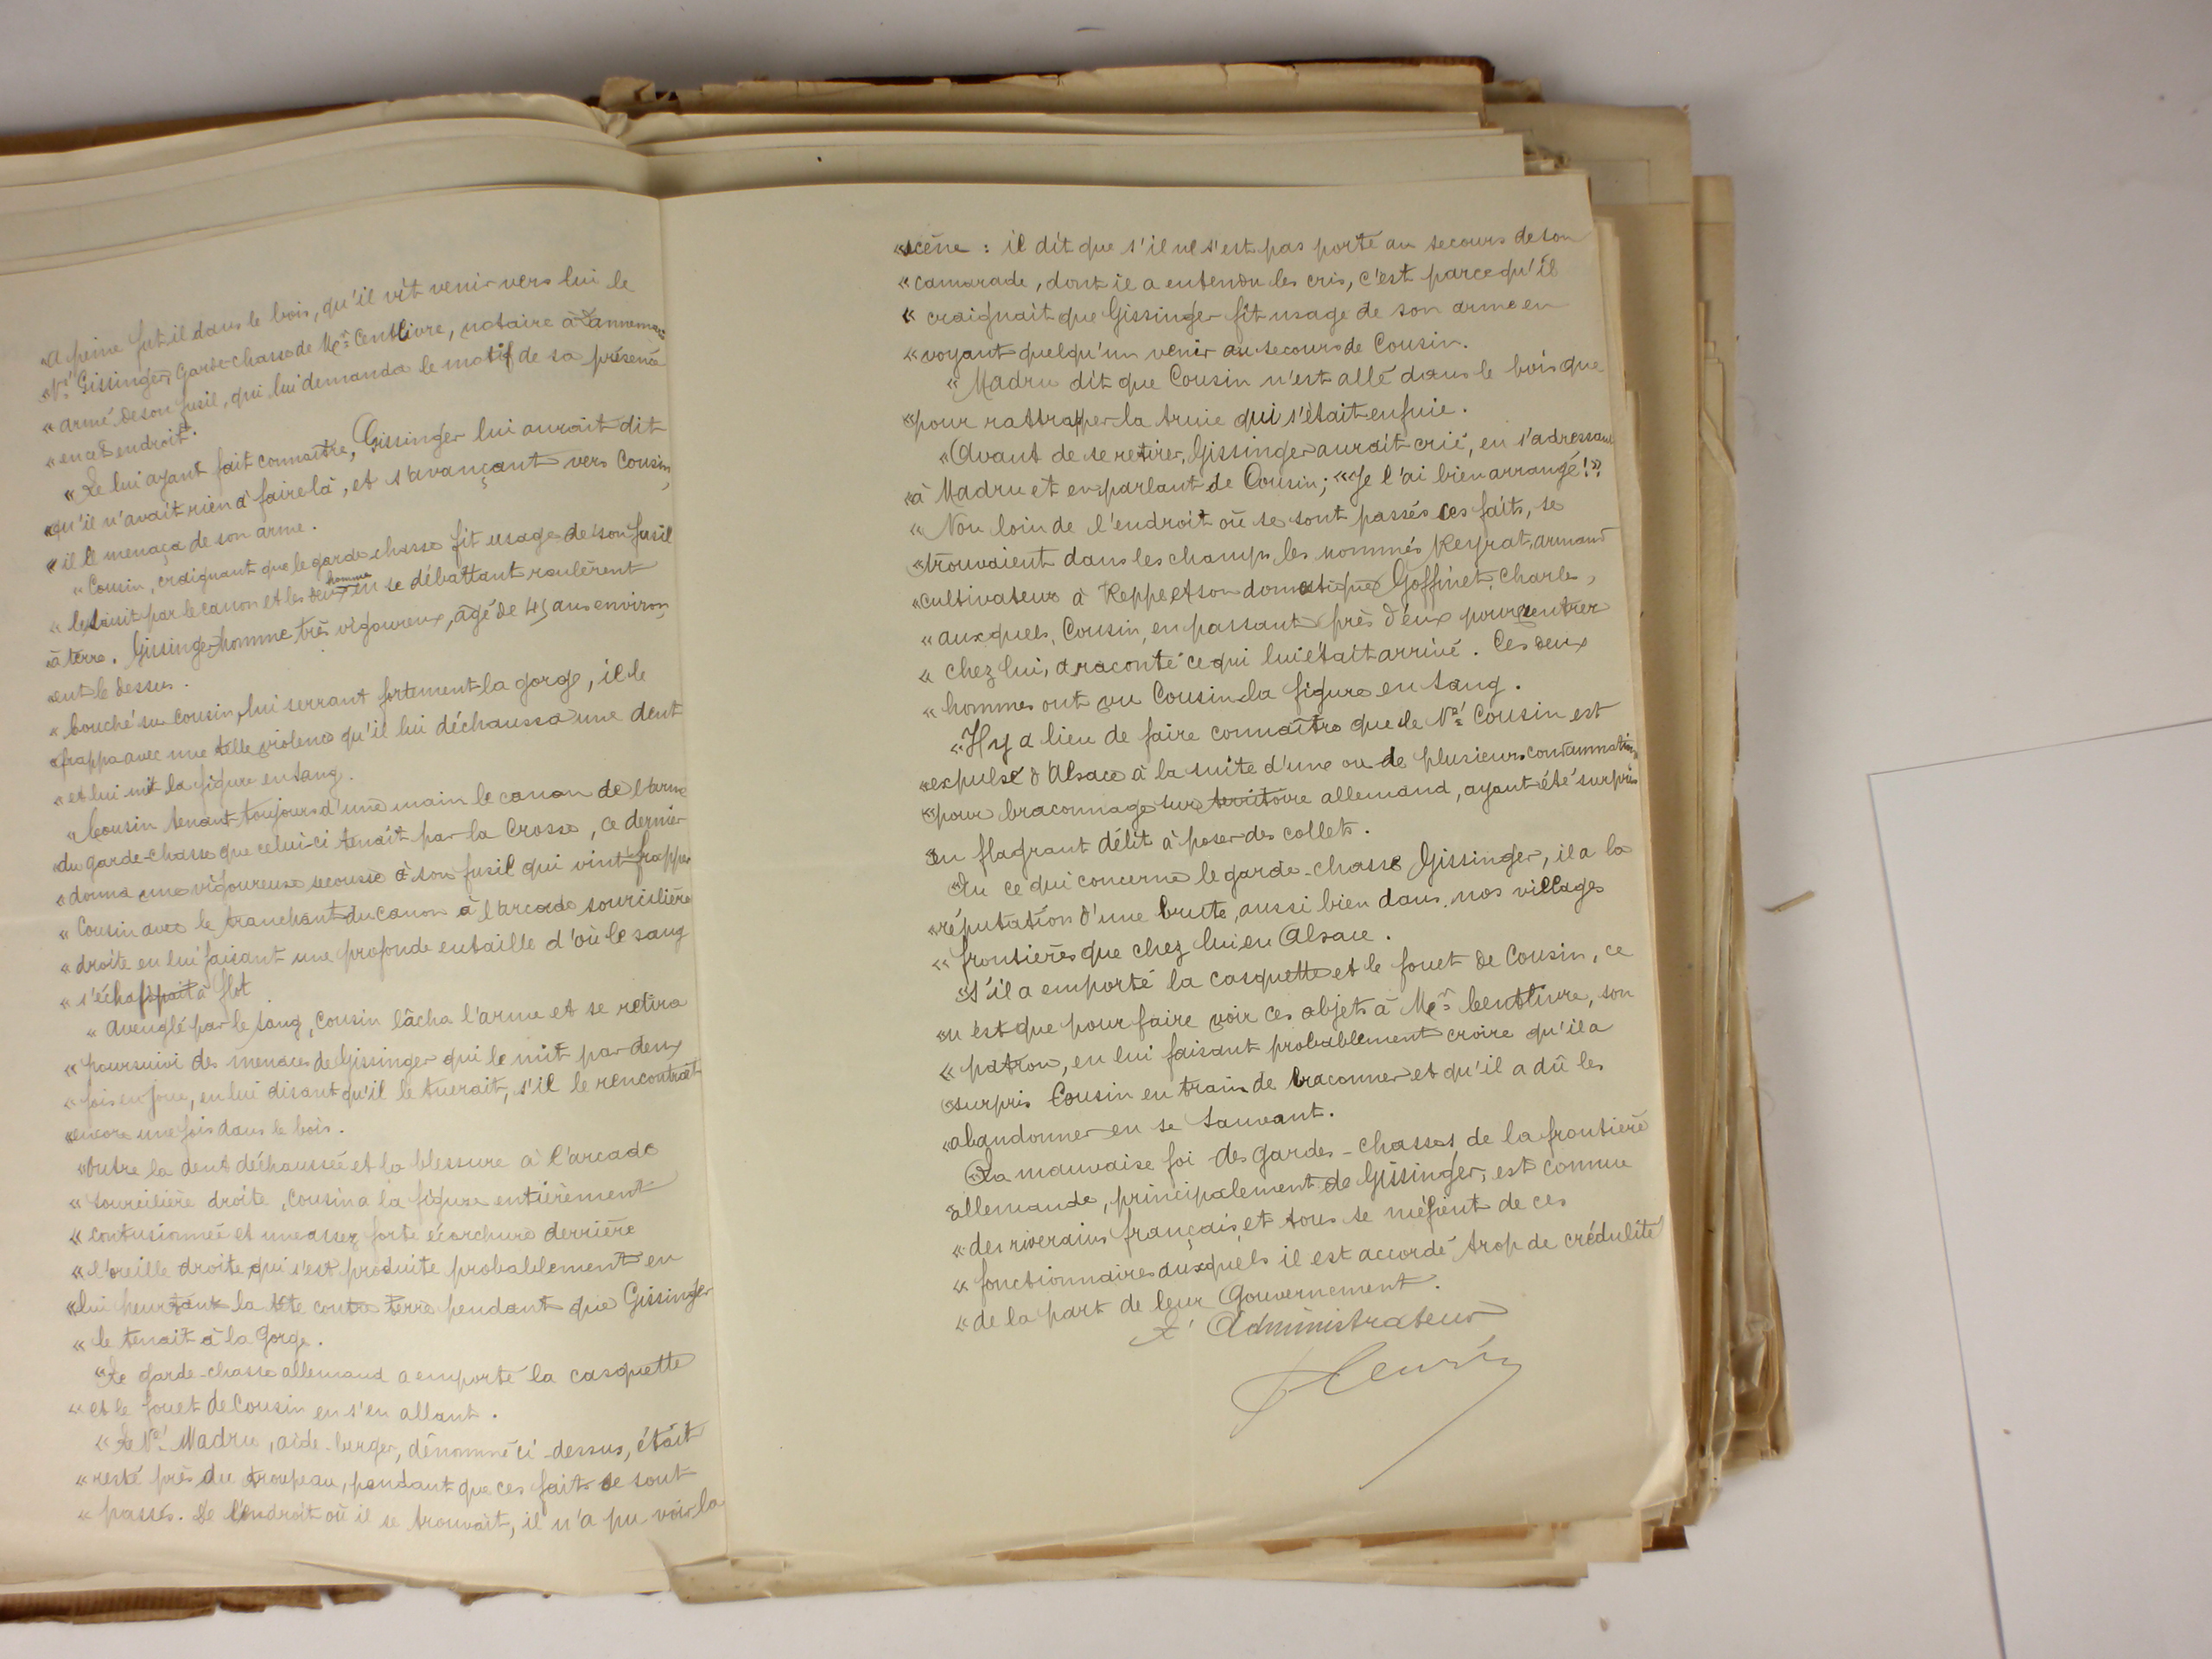 «A peine fut-il dans le bois, qu'il vit venir vers lui le
«Né Gissinger, garde-chasse de Mr Centlivre, notaire à Dannemarie
« armé de son fusil, qui lui demanda le motif de sa présence
« en cet endroit.
« Le lui ayant fait connaître, Gissinger lui aurait dit
«qu'il n'avait rien à faire là, et s'avançant vers Cousin,
« il le menaça de son arme.
« Cousin, craignant que le garde-chasse fit usage de son fusil
« le saisit par le canon et les deux hommes en se débattant roulèrent
«à terre. Gissinger, homme très vigoureux, âgé de 45 ans environ,
«eut le dessus.
« Couché sur Cousin, lui serrant fortement la gorge, il le
«frappa avec une telle violence qu'il lui déchaussa une dent
« et lui mit la figure en sang.
« Cousin tenant toujours d'une main le canon de l'arme
«du garde-chasse que celui-ci tenait par la crosse, ce dernier
« donna une vigoureuse secousse à son fusil qui vint frapper
« Cousin avec le tranchant du canon à l'arcade sourcilière
« droite en lui faisant une profonde entaille d'où le sang
« s'échappait à flot
« Aveuglé par le sang, Cousin lâcha l'arme et se retira
« poursuivi des menaces de Gissinger qui le mit par deux
« fois en joue, en lui disant qu'il le tuerait, s'il le rencontrait
«encore une fois dans le bois.
«Outre la dent déchaussée et la blessure à l'arcade
« sourcilière droite, Cousin a la figure entièrement
« contusionnée et une assez forte écorchure derrière
« l'oreille droite qui s'est produite probablement en
«lui heurtant la tête contre terre pendant que Gissinger
« le tenait à la gorge.
«Le garde-chasse allemand a emporté la casquette
« et le fouet de Cousin en s'en allant.
« Le Né Madru, aide-berger, dénommé ci-dessus, était
« resté près du troupeau, pendant que ces faits se sont
« passés. De l'endroit où il se trouvait, il n'a pu voir la
«scène : il dit que s'il ne s'est pas porté au secours de son
« camarade, dont il a entendu les cris, c'est parce qu'il
« craignait que Gissinger fit usage de son arme en
« voyant quelqu'un venir au secours de Cousin.
« Madru dit que Cousin n'est allé dans le bois que
«pour rattraper la truie qui s'était enfuie.
«Avant de se retirer, Gissinger aurait crié, en s'adressant
«à Madru et en parlant de Cousin; «Je l'ai bien arrangé!»
« Non loin de l'endroit où se sont passés ces faits, se
«trouvaient dans les champs les nommés Reyrat, Armand
«cultivateur à Reppe et son domestique Goffinet, Charles,
« auxquels, Cousin, en passant près d'eux pour rentrer
« chez lui, a raconté ce qui lui était arrivé. Ces deux
« hommes ont vu Cousin la figure en sang.
«Il y a lieu de faire connaître que le Né Cousin est
«expulsé d'Alsace à la suite d'une ou de plusieurs condamnations
«pour braconnage sur territoire allemand, ayant été surpris
«en flagrant délit à poser des collets.
«En ce qui concerne le garde-chasse Gissinger, il a la
«réputation d'une brute, aussi bien dans nos villages
« frontières que chez lui en Alsace.
«S'il a emporté la casquette et le fouet de Cousin, ce
«n'est que pour faire voir ces objets à Mr Centlivre, son
« patron, en lui faisant probablement croire qu'il a
«surpris Cousin en train de braconner et qu'il a dû les
«abandonner en se sauvant.
«La mauvaise foi des gardes-chasses de la frontière
allemande, principalement de Gissinger, est connue
« des riverains français, et tous se méfient de ces
« fonctionnaires auxquels il est accordé trop de crédulité
« de la part de leur Gouvernement.
L'Administrateur